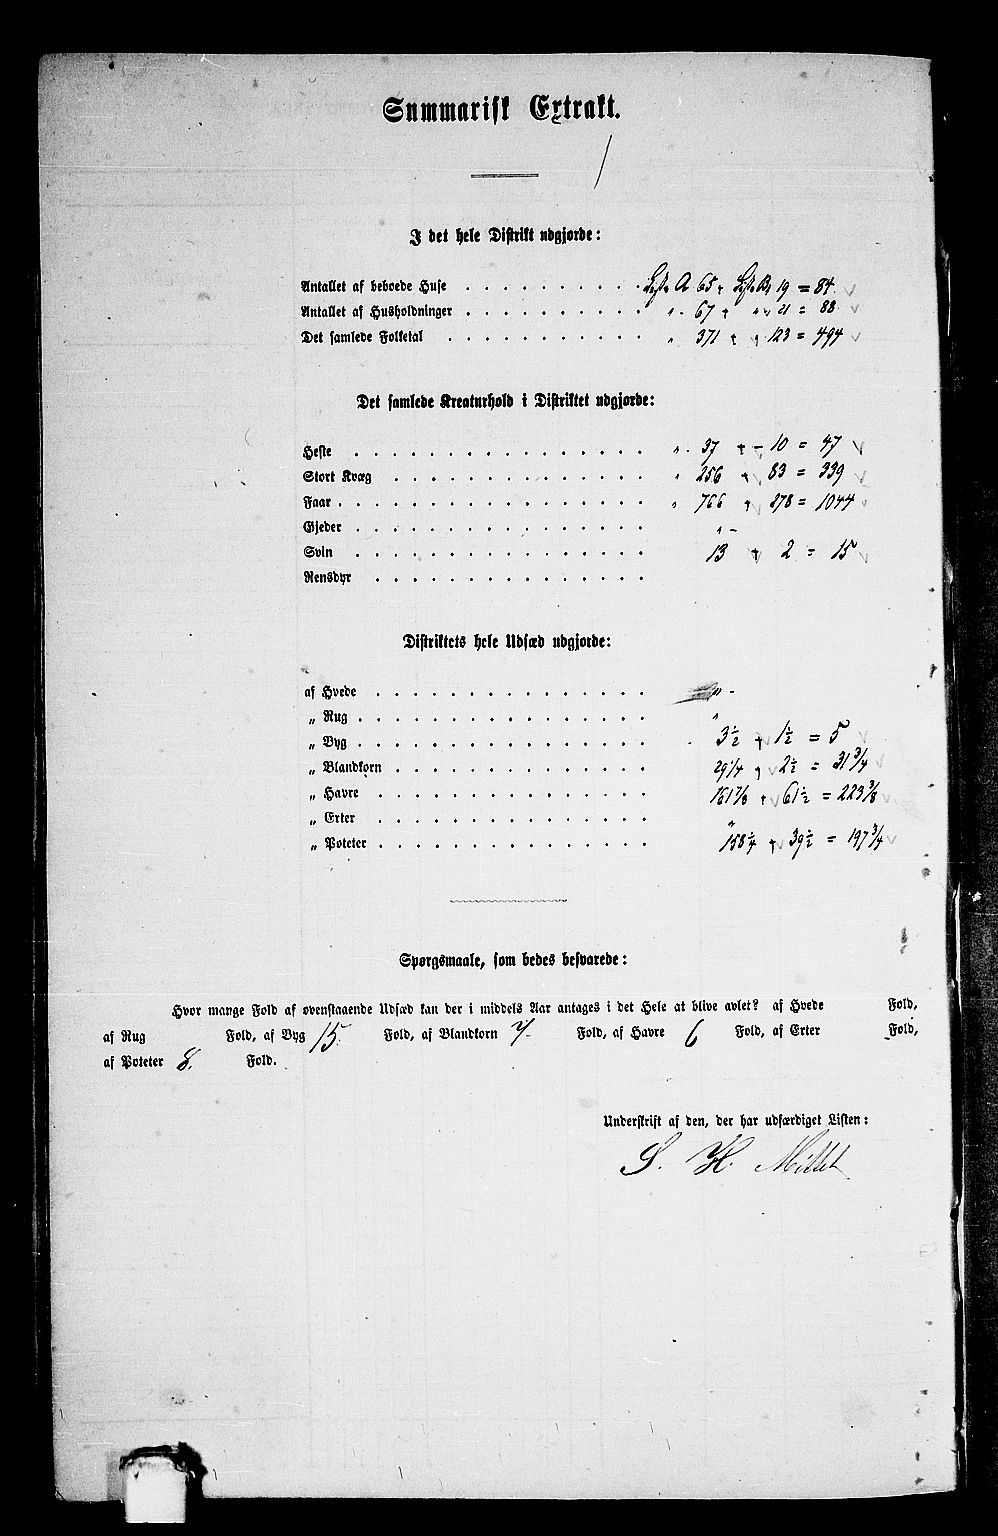 Summarisk Extrakt.
I det hele Distrikt udgjorde:
Antallet af beboede Huse . . . . . . . . . . Liste A 65 + Liste B 19 = 84
Antallet af Husholdninger . . . . . . . . . . " 67 + " " 21 = 88
Det samlede Folketal . . . . . . . . . . " 371 + " 123 = 494
Det samlede Kreaturhold i Distriktet udgjorde:
Heste . . . . . . . . . . " 37 + - 10 = 47
Stort Kvæg . . . . . . . . . . " 256 + 83 = 339
Faar . . . . . . . . . . " 766 + 278 = 1044
Gjeder . . . . . . . . . . " -
Svin . . . . . . . . . . 13 + 2 = 15
Rensdyr . . . . . . . . . .
Distriktets hele Udsæd udgjorde:
af Hvede . . . . . . . . . . " -
„ Rug . . . . . . . . . . "
„ Byg . . . . . . . . . . 3 1/2 + 1 1/2 = 5
„ Blandkorn . . . . . . . . . . 29 1/4 + 2 1/2 = 31 3/4
„ Havre . . . . . . . . . . 161 7/8 + 61 1/2 = 223 3/8
„ Erter . . . . . . . . . . "
„ Poteter . . . . . . . . . . 158 1/4 + 39 1/2 = 197 3/4
Spørgsmaale, som bedes besvarede:
Hvor mange Fold af ovenstaaende Udsæd kan der i middels Aar antages i det Hele at blive avlet? af Hvede Fold,
af Rug Fold, af Byg 15. Fold, af Blandkorn 7. Fold, af Havre 6 Fold, af Erter - Fold,
af Poteter 8. Fold.
Underskrift af den, der har udfærdiget Listen:
S. H.